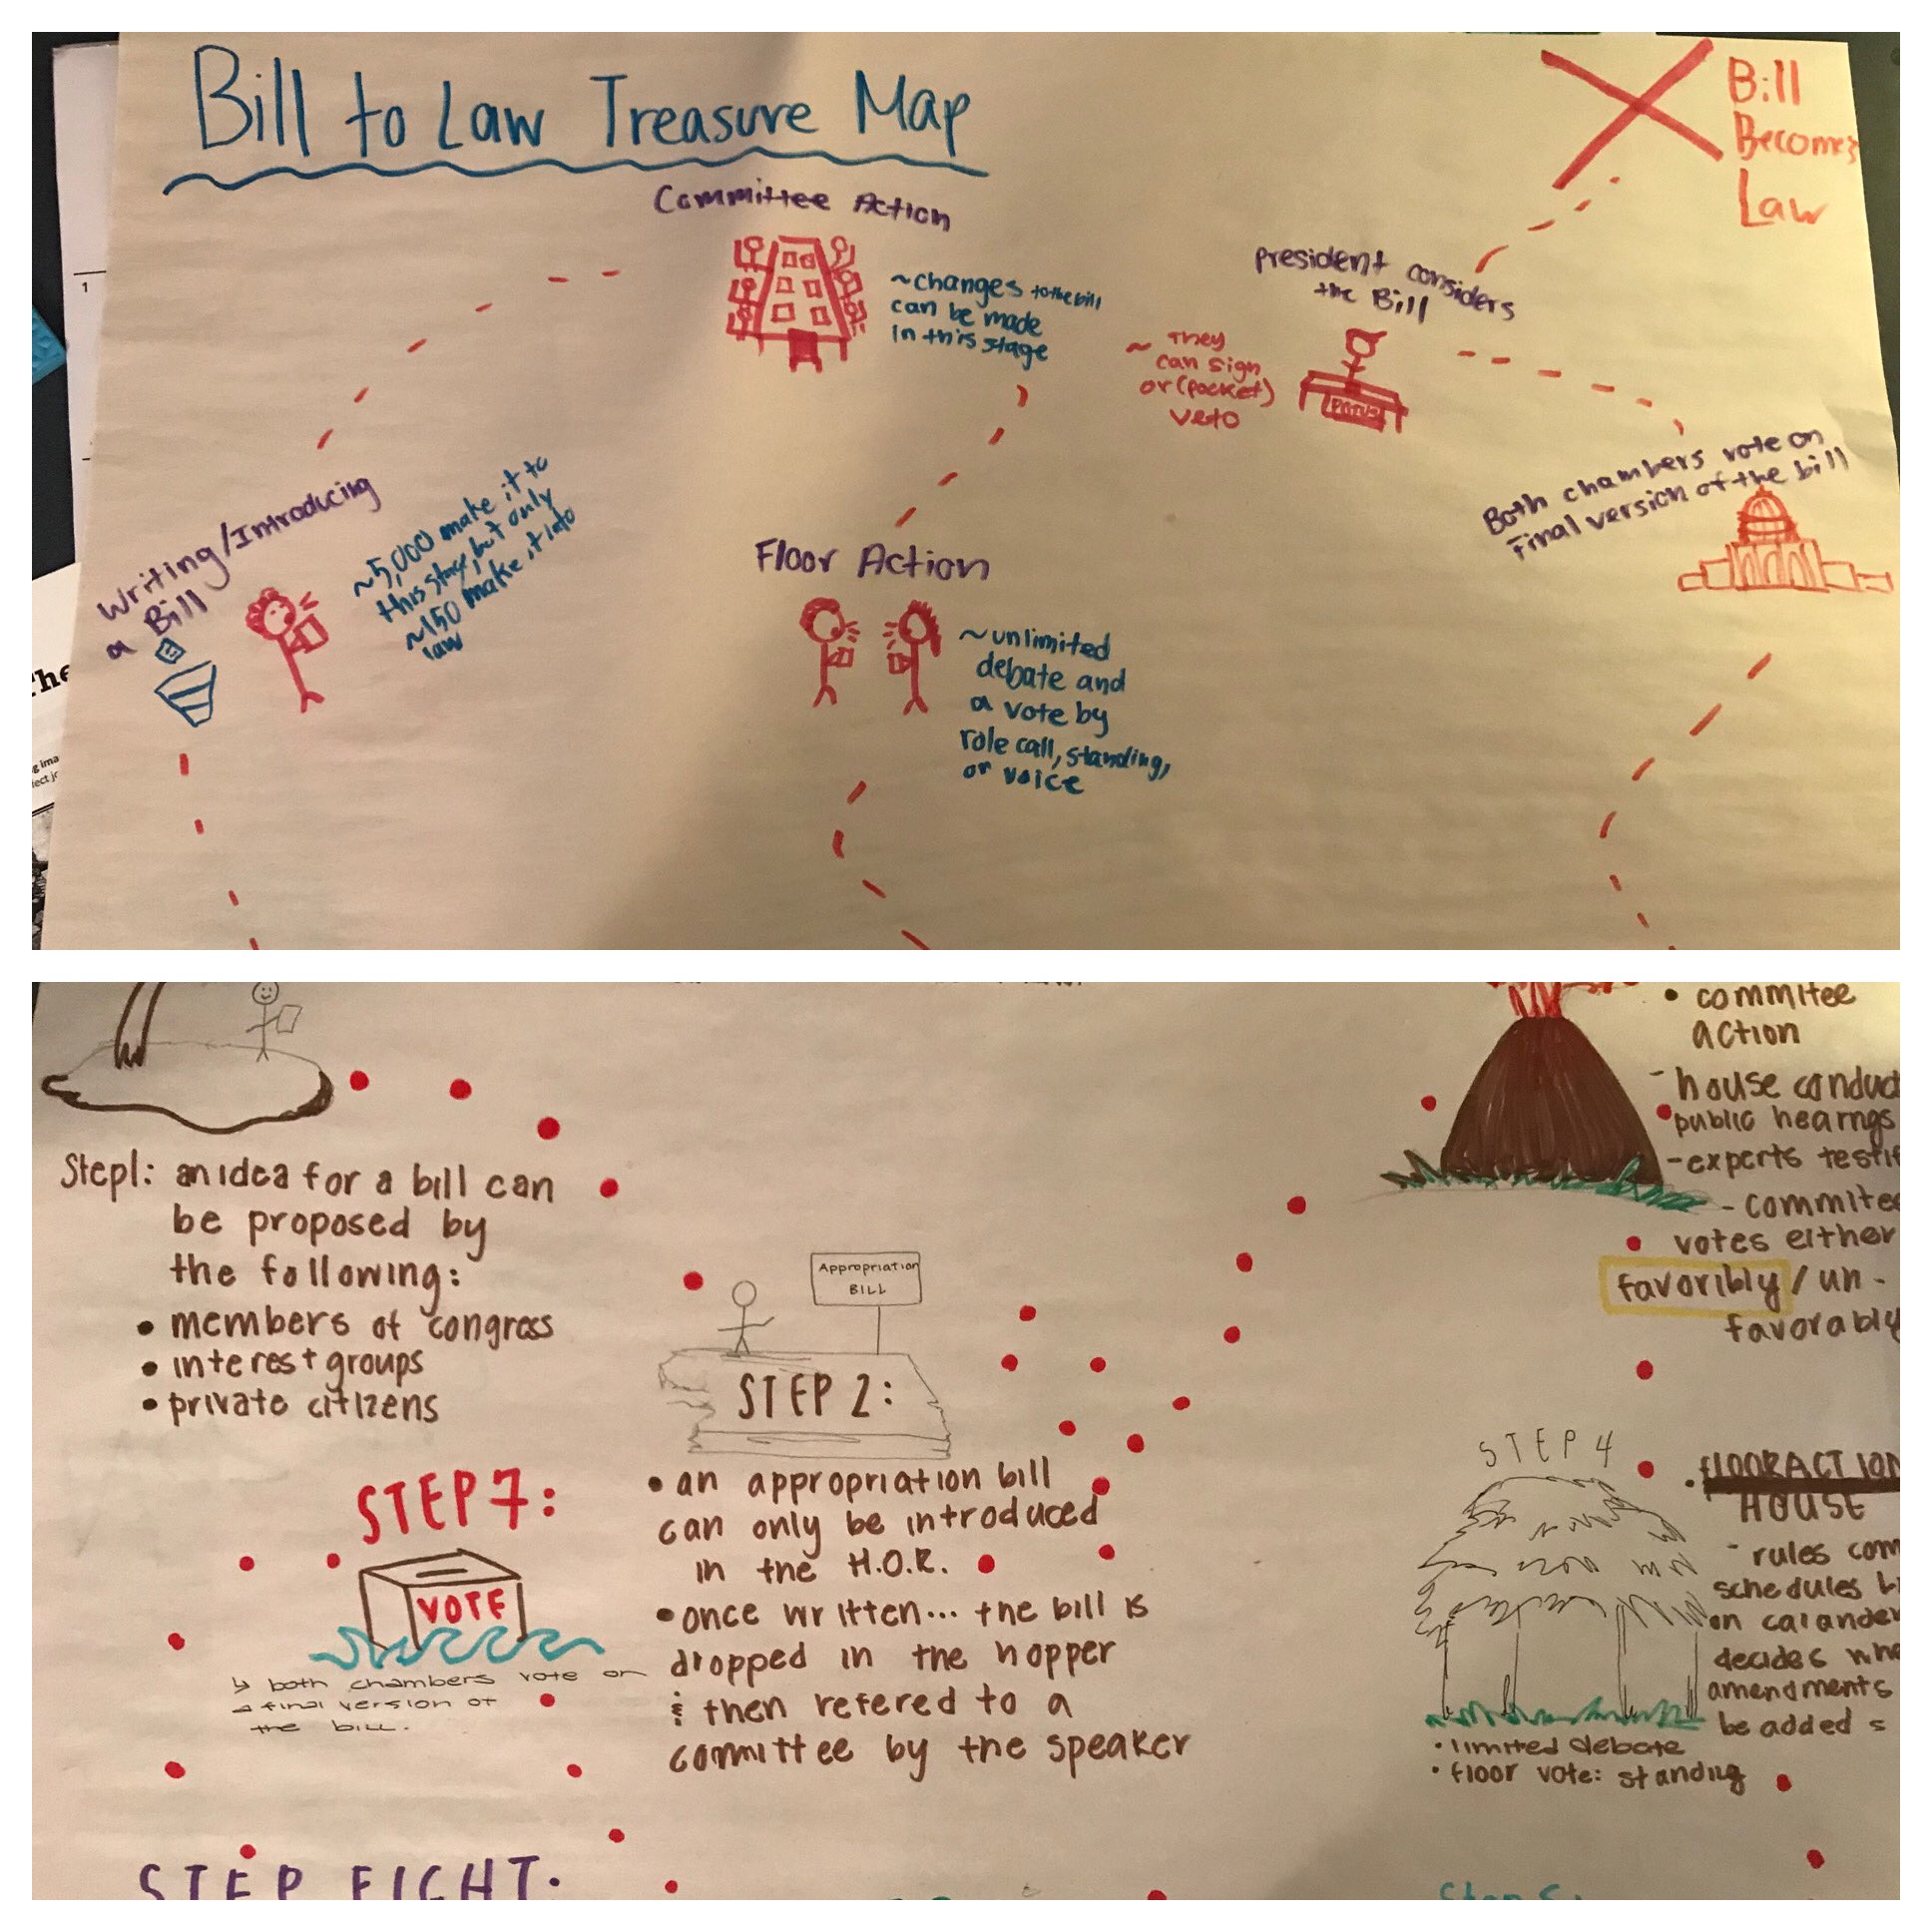 Bill to Law Treasure Map
Bill
Becomes
Law
Committee Action
~changes to the bill
can be made
in this stage
president considers
the Bill
~ They
can sign
or (pocket)
veto
Both chambers vote on
Final version of the bill
Writing/Introducing
a Bill
~5,000 make it to
this stage, but only
~150 make it into
law
Floor Action
~unlimited
debate and
a vote by
role call, standing,
or voice
1
Step1: an idea for a bill can
be proposed by
the following:
• members of congress
• interest groups
• private citizens
Appropriation
BILL
STEP 2:
• an appropriation bill
can only be introduced
in the H.O.R.
• once written... the bill is
dropped in the hopper
& then refered to a
committee by the speaker
• commitee
action
- house conduct
public hearings
- experts testif
- commitee
votes either
favoribly / un-
favorably
STEP 4
• FLOOR ACTION
HOUSE
- rules com
schedules bi
on calander
decides whe
amendments
be added
• limited debate
• floor vote: standing
STEP 7:
VOTE
↳ both chambers vote on
a final version of
the bill.
STEP EIGHT: